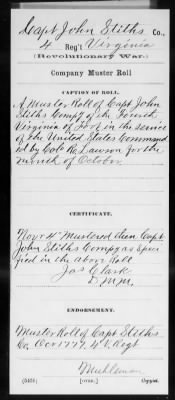 Capt John Stiths Co.,
4 Reg't Virginia
(Revolutionary War.)
Company Muster Roll
CAPTION OF ROLL.
A Muster Roll of Capt John
Stiths Compy of the Fourth
Virginia of Foot in the service
of the United States Command
ed by Colo R. Lawson for the
month of October
CERTIFICATE.
Novr 4th Mustered then Capt
John Stiths Compy as spec
ified in the above Roll
Jas Clark
D.M.M.
ENDORSEMENT.
Muster Roll of Capt Stiths
Co. Oct 1777, 4 V. Regt
Muhleman
(543h) [OVER.] Copyist.